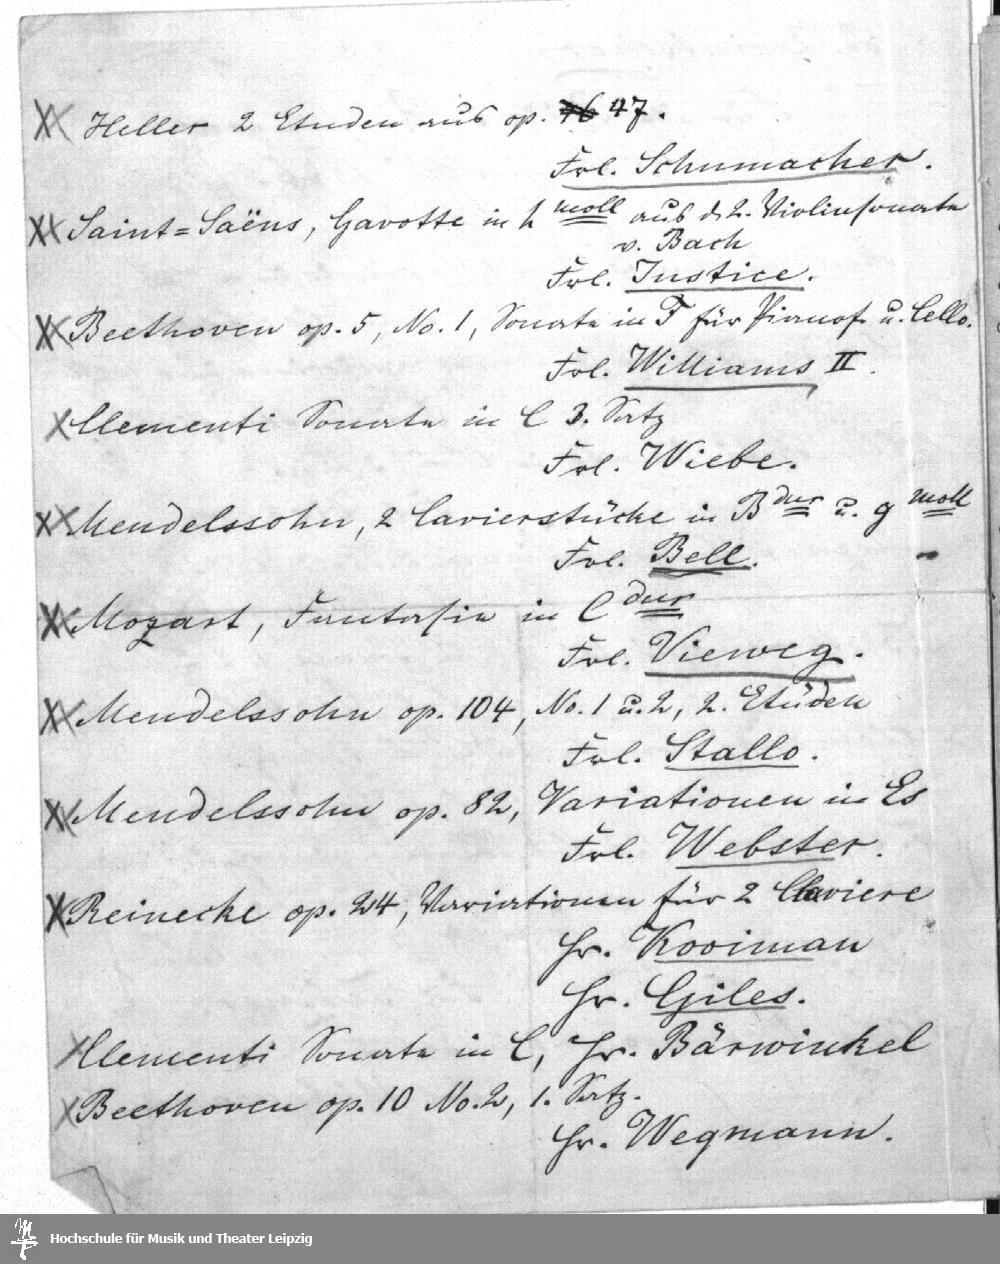 Heller 2 Etuden aus op. 46 47.
Frl. Schumacher.
Saint=Saëns, Gavotte in h moll aus d. 2. Violinsonate
v. Bach
Frl. Justice.
Beethoven op. 5, No. 1, Sonate in F für Pianof. u. Cello.
Frl. Williams II.
Clementi Sonate in C 3. Satz
Frl. Wiebe.
Mendelssohn, 2 Clavierstücke in B dur u. g moll
Frl. Bell.
Mozart, Fantasie in C dur
Frl. Vieweg.
Mendelssohn op. 104, No. 1 u. 2, 2. Etüden
Frl. Stallo.
Mendelssohn op. 82, Variationen in Es
Frl. Webster.
Reinecke op. 24, Variationen für 2 Claviere
Hr. Kooiman
Hr. Giles.
Clementi Sonate in C, Hr. Bärwinkel
Beethoven op. 10 No. 2, 1. Satz.
Hr. Wegmann.
Hochschule für Musik und Theater Leipzig